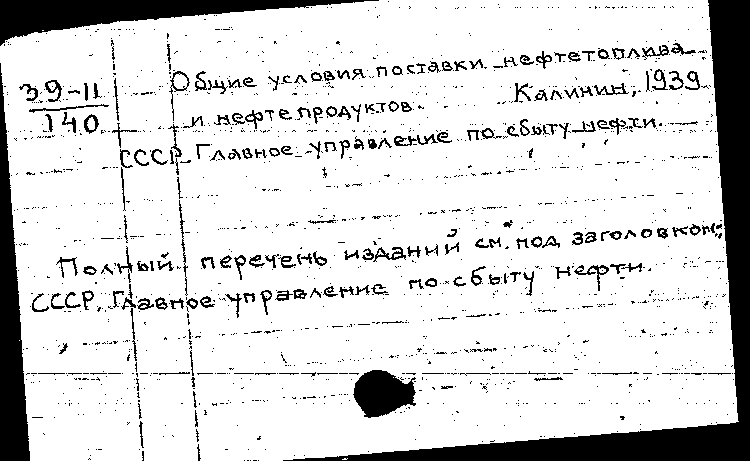 39-11
140
Общие условия поставки нефтетоплива
и нефтепродуктов. Калинин, 1939
СССР. Главное управление по сбыту нефти.
Полный перечень изданий см. под заголовком:
СССР. Главное управление по сбыту нефти.